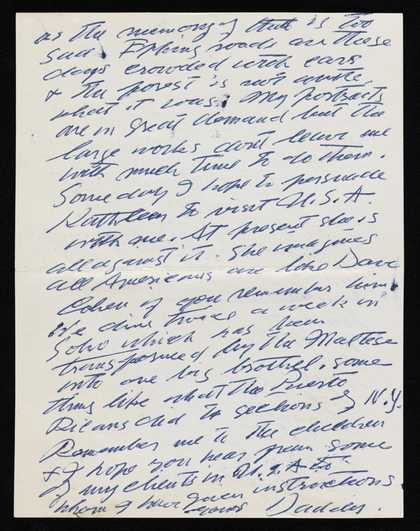 as the memory of that is too
sad. Epping roads are these
days crowded with cars
& the forest is not quite
what it was. My portraits
are in great demand but the
large works dont leave me
with much time to do them.
Some day I hope to persuade
Kathleen to visit U.S.A.
with me. At present she is
all against it. She imagines
all Americans are like Dave
Cohen if you remember him
We dine twice a week in
Soho which has been
transformed by the Maltese
into one big brothel, some
thing like what the Puerto
Ricans did to sections of N.Y.
Remember me to the children
& I hope you hear from some
of my clients in U.S.A. to
whom I have given instructions.
yours Daddy.